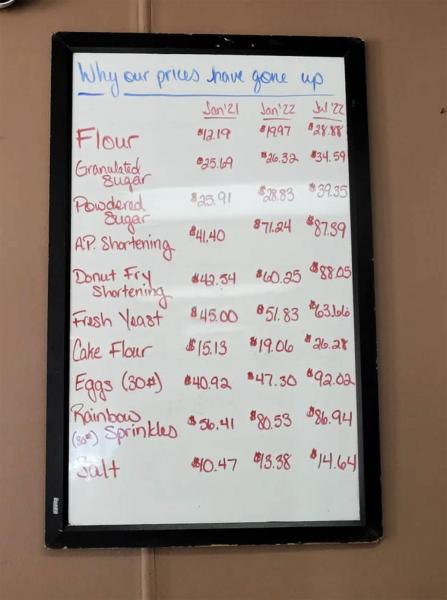 Why our prices have gone up
Jan'21 Jan'22 Jul'22
Flour $12.19 $19.97 $28.88
Granulated Sugar $25.69 $26.32 $34.59
Powdered Sugar $25.91 $28.83 $39.35
A.P. Shortening $41.40 $71.24 $87.39
Donut Fry Shortening $42.54 $60.25 $88.05
Fresh Yeast $45.00 $51.83 $63.66
Cake Flour $15.13 $19.06 $26.28
Eggs (30#) $40.92 $47.30 $92.02
Rainbow (30#) Sprinkles $56.41 $80.53 $86.94
Salt $10.47 $13.38 $14.64